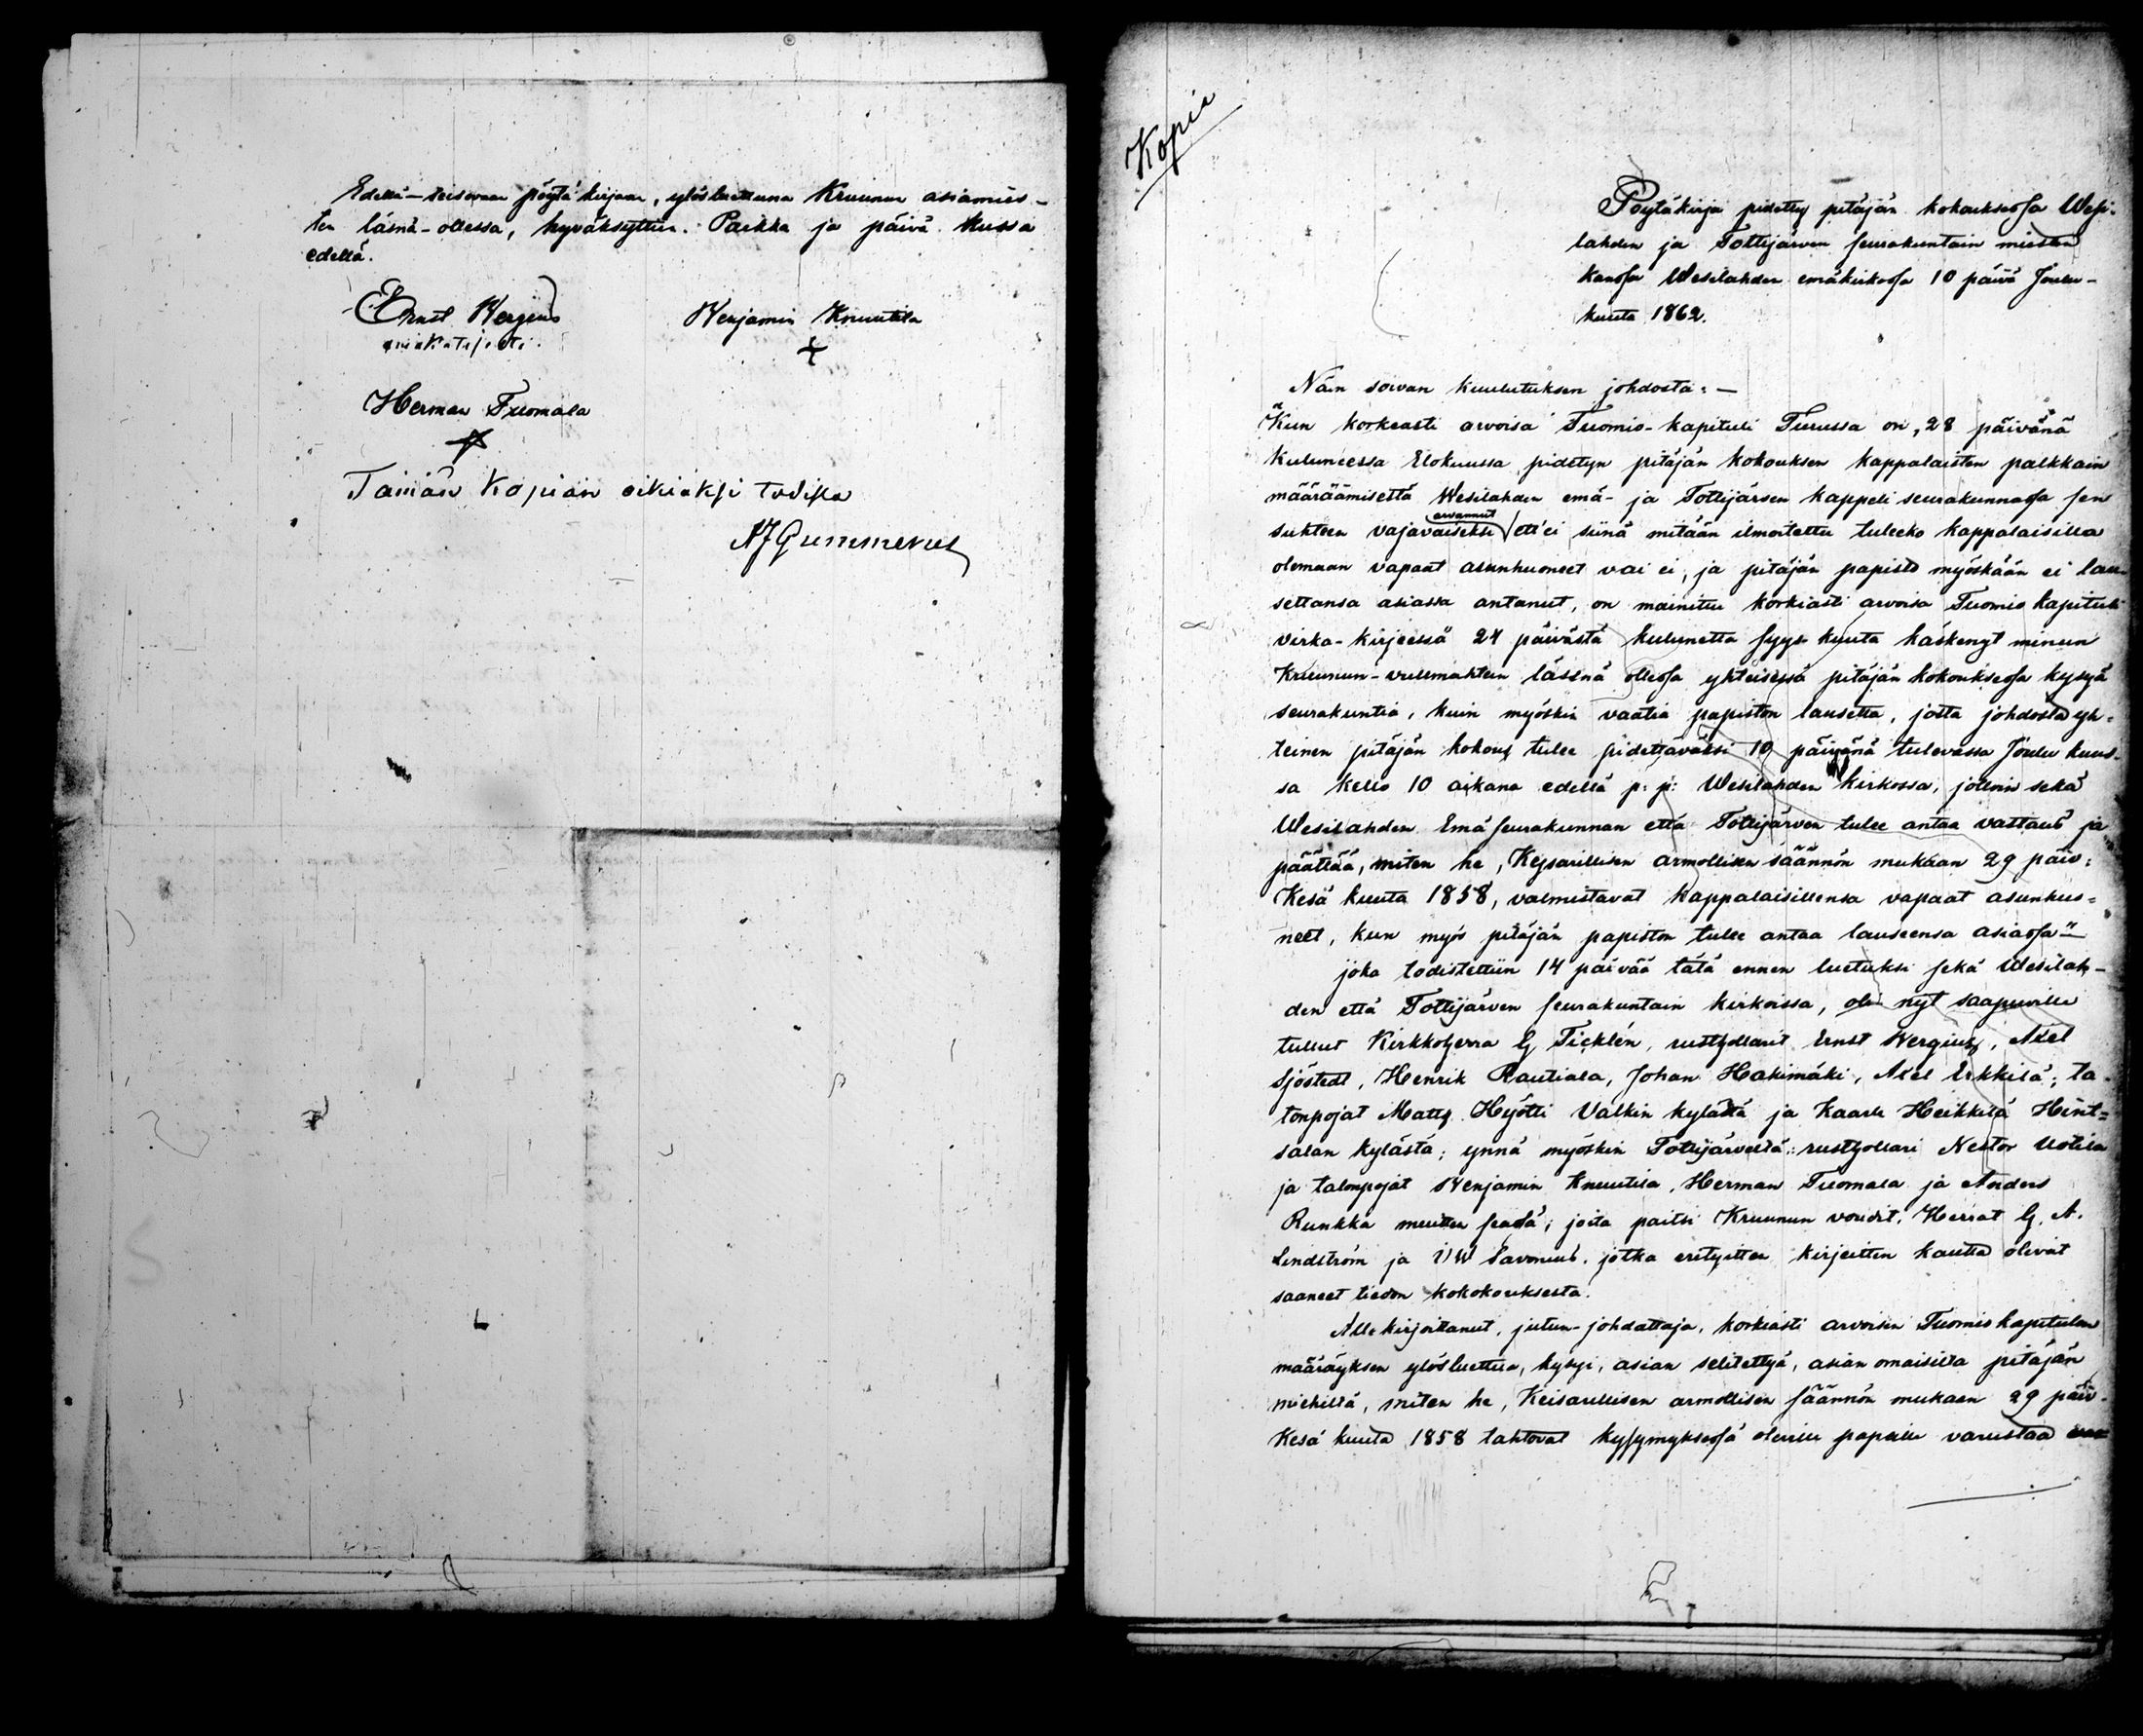 Edellä-seisovan pöytäkirjan, ylösluettuna Kruunun asiamies-
ten läsnä-ollessa, hyväksyttiin. Paikka ja päivä kussa
edellä.
Ernst Bergius
Benjamin Knuutila
Herman Tuomala
Tämän Kopian oikiaksi todistaa
AJGummerus
Kopia
Pöytäkirja pidetty pitäjän kokouksessa Wesi-
lahden ja Tottijärven seurakuntain miesten
kanssa Wesilahden emäkirkossa 10 päivä Joulu-
kuuta 1862.
Näin soivan kuulutuksen johdosta: —
"Kun korkeasti arvoisa Tuomio-kapituli Turussa on, 28 päivänä
kuluneessa Elokuussa pidetyn pitäjän kokouksen kappalaisten palkkain
määräämisestä Wesilahden emä- ja Tottijärven kappeli seurakunnassa sen
suhteen vajavaiseksi arvannut ett'ei siinä mitään ilmoitettu tuleeko kappalaisilla
olemaan vapaat asunhuoneet vai ei, ja pitäjän papisto myöskään ei lau-
settansa asiassa antanut, on mainittu korkiasti arvoisa Tuomio kapituli
virka-kirjeessä 24 päivästä kulunetta syys kuuta käskenyt minun
Kruunun-vullmahtein läsnä ollessa yhteisessä pitäjän kokouksessa kysyä
seurakuntia, kuin myöskin vaatia papiston lausetta, josta johdosta yh-
teinen pitäjän kokous tulee pidettäväksi 10 päivänä tulevassa Joulu kuus-
sa kello 10 aikana edellä p: p: Wesilahden kirkossa, jolloin sekä
Wesilahden Emäseurakunnan että Tottijärven tulee antaa vastaus ja
päättää, miten he, Kejsarillisen armollisen säännön mukaan 29 päiv:
Kesä kuuta 1858, valmistavat kappalaisillensa vapaat asunhuo-
neet, kun myös pitäjän papiston tulee antaa lauseensa asiassa"—
joka todistettiin 14 päivää tätä ennen luetuksi sekä Wesilah-
den että Tottijärven seurakuntain kirkoissa, oli nyt saapuville
tullut Kirkkoherra G Ticklén, rustHollarit Ernst Bergius, Axel
Sjöstedt, Henrik Rautiala, Johan Hakimäki, Axel Erkkilä; ta-
lonpojat Matts Hyötti Valkin kylästä ja Kaarle Heikkilä Hint-
salan kylästä; ynnä myöskin Tottijärveltä: rustHollari Nestor Uotila
ja talonpojat Benjamin Knuutila, Herman Tuomala ja Anders
Runkka muitten seassa; joita paitsi Kruunun voudit, Herrat G. A.
Lindström ja Savonius, jotka erityitten kirjeitten kautta olivat
saaneet tiedon kokokouksesta.
Allekirjoittanut, jutun-johdattaja, korkiasti arvoisen Tuomiokapitulin
määräyksen ylösluettua, kysyi, asian selitettyä, asian omaisilta pitäjän
miehiltä, miten he, Keisarillisen armollisen säännön mukaan 29 päiv.
Kesä kuuta 1858 tahtovat kysymyksessä oleville papeille varustaa